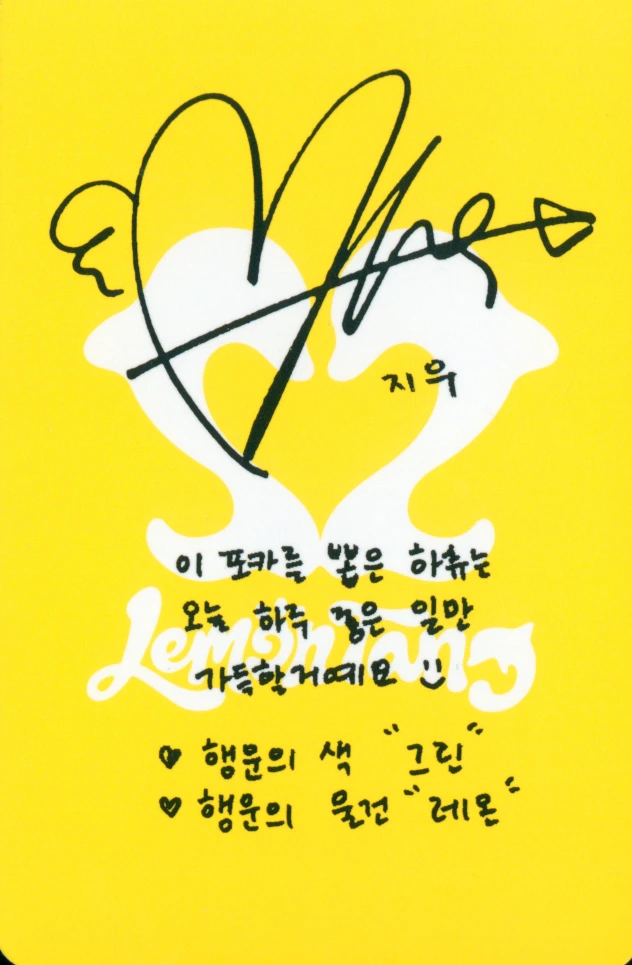 지우
이 포카를 뽑은 하츄는
오늘 하루 좋은 일만
Lemon Tang
가득할거예요
♥ 행운의 색 "그린"
♥ 행운의 물건 "레몬"